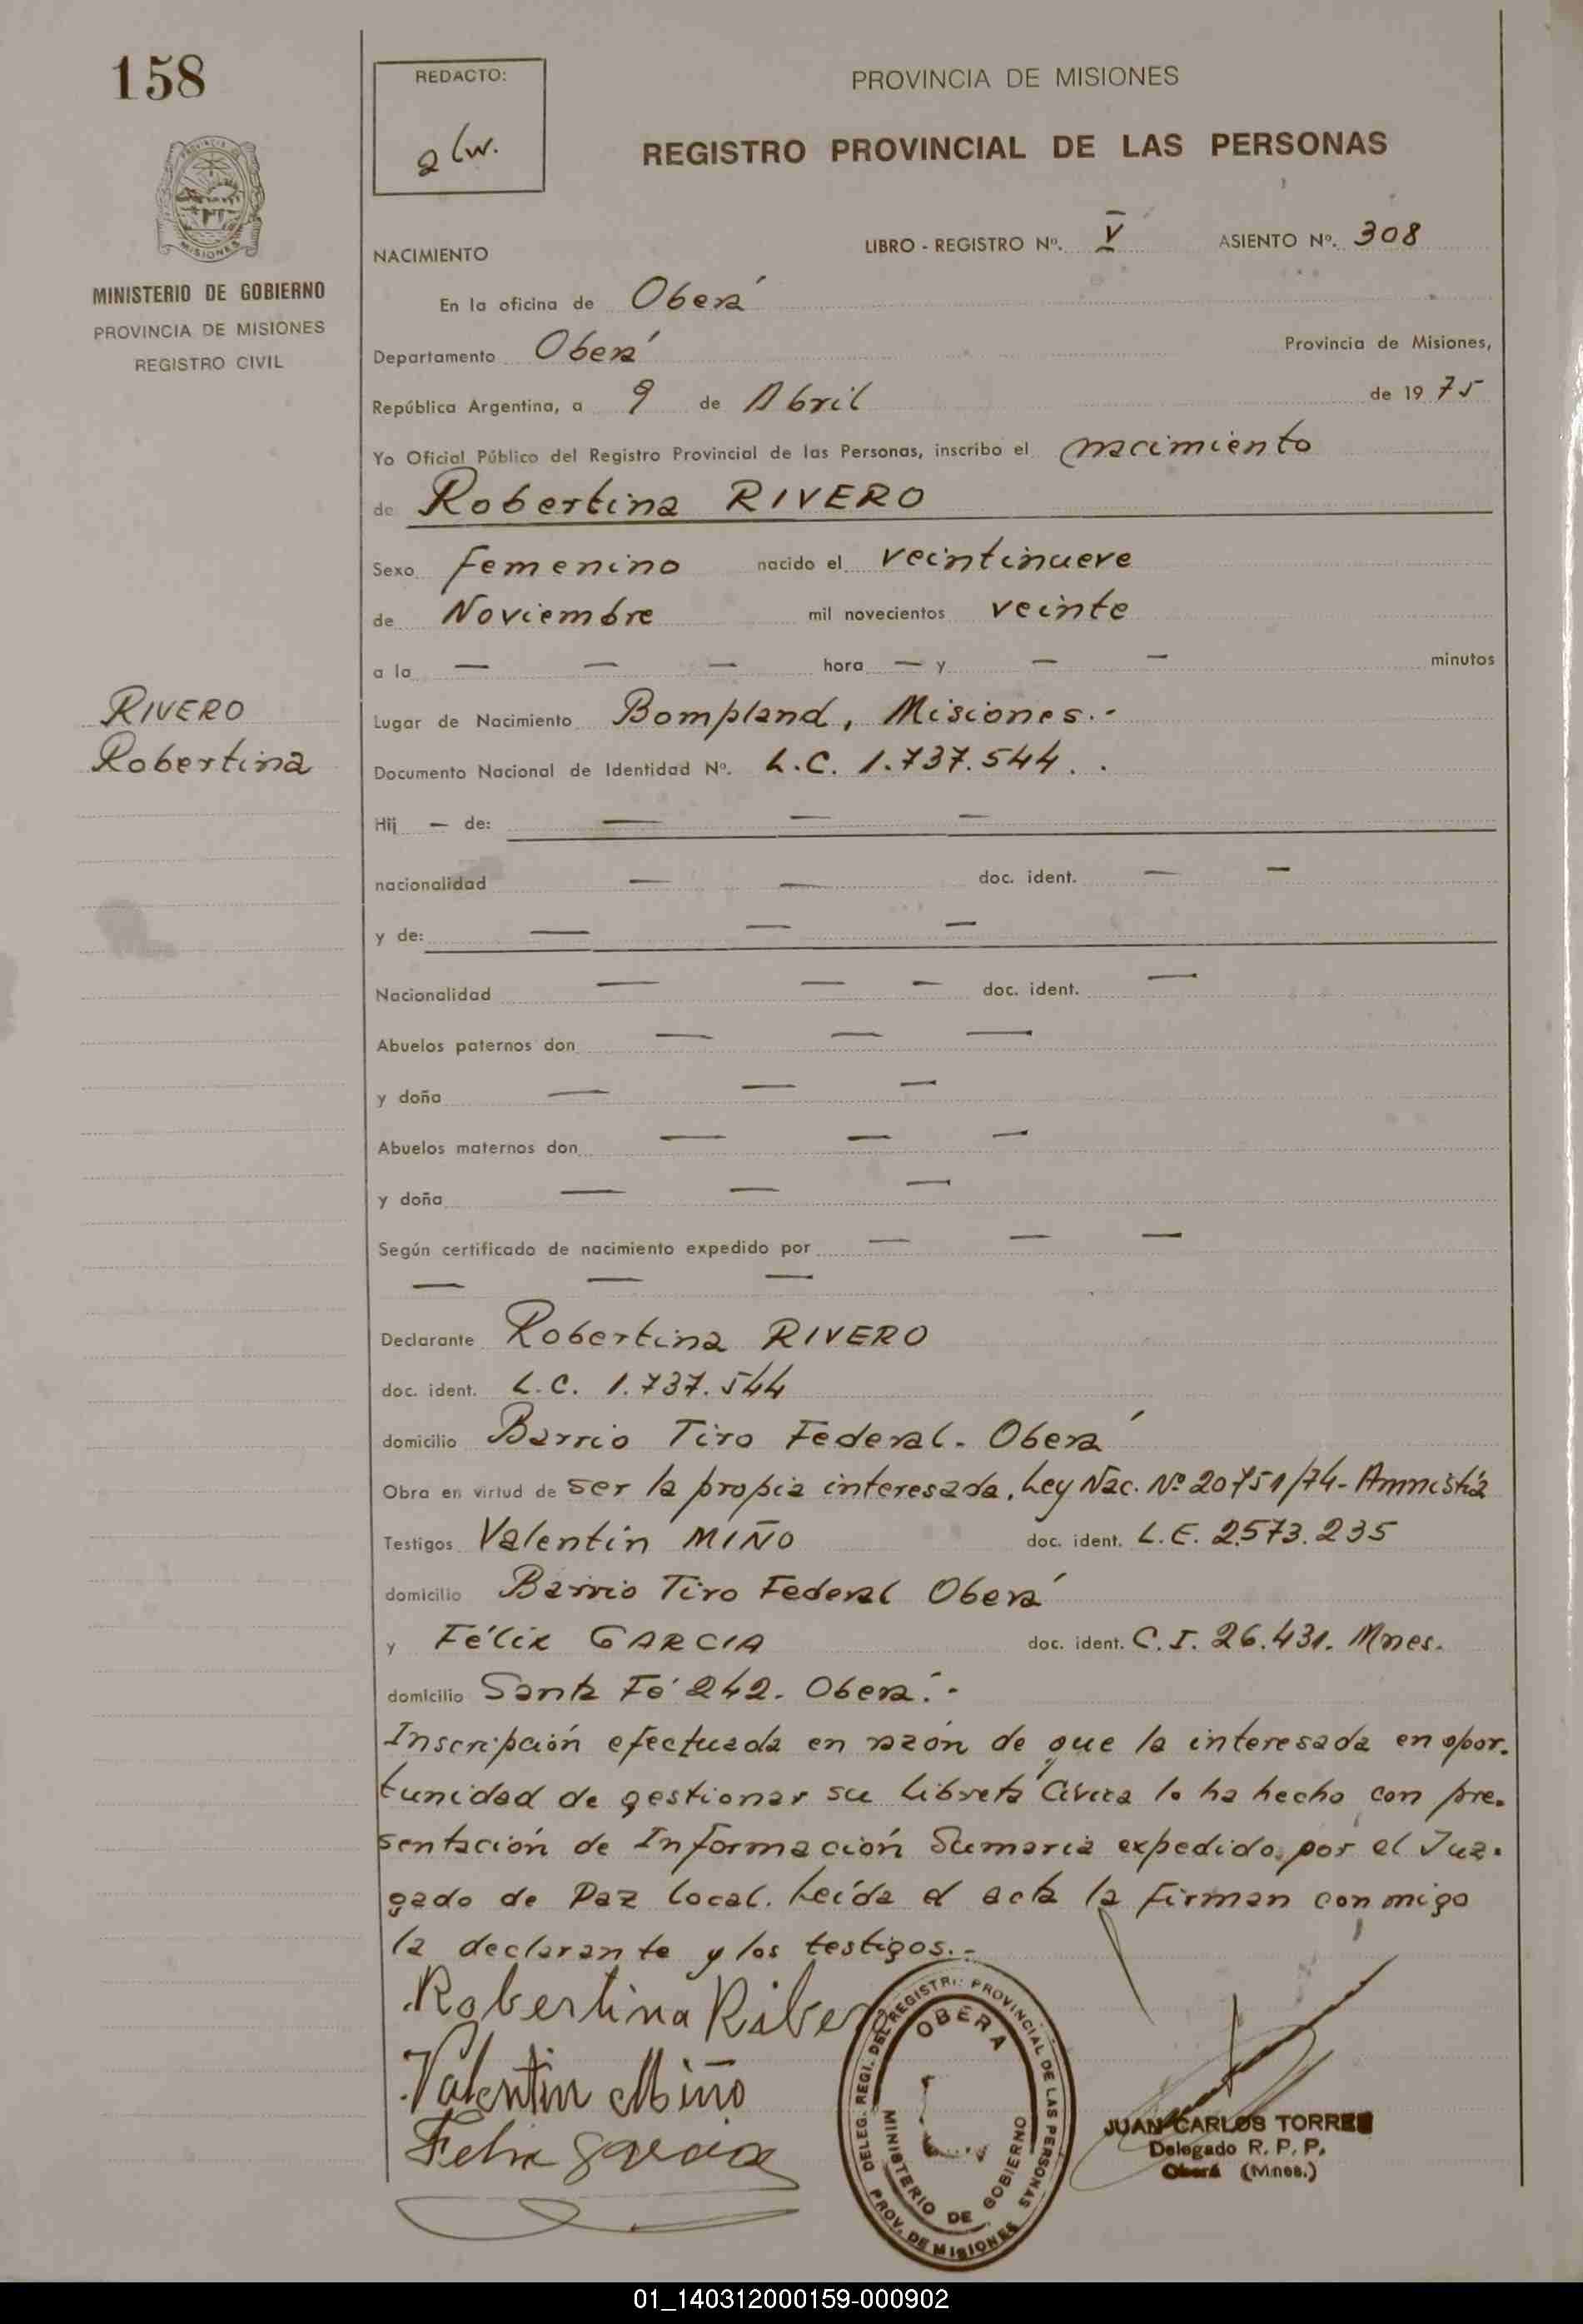 158
REDACTO:
PROVINCIA DE MISIONES
REGISTRO PROVINCIAL DE LAS PERSONAS
MISIONES
MINISTERIO DE GOBIERNO
PROVINCIA DE MISIONES
REGISTRO CIVIL
NACIMIENTO LIBRO - REGISTRO Nº. V ASIENTO Nº. 308
En la oficina de Oberá
Departamento Oberá Provincia de Misiones,
República Argentina, a 9 de Abril de 1975
Yo Oficial Público del Registro Provincial de las Personas, inscribo el nacimiento
de Robertina RIVERO
Sexo Femenino nacido el veintinueve
de Noviembre mil novecientos veinte
a la — — — hora — y — — minutos
RIVERO
Robertina
Lugar de Nacimiento Bompland, Misiones.-
Documento Nacional de Identidad Nº. L.C. 1.737.544. .
Hij — de: — — —
nacionalidad — — doc. ident. — —
y de: — — —
Nacionalidad — — — doc. ident. —
Abuelos paternos don — — —
y doña — — —
Abuelos maternos don — — —
y doña — — —
Según certificado de nacimiento expedido por — — —
— — —
Declarante Robertina RIVERO
doc. ident. L.C. 1.737.544
domicilio Barrio Tiro Federal. Oberá
Obra en virtud de ser la propia interesada. Ley Nac. Nº 20751/74- Amnistía
Testigos Valentín MIÑO doc. ident. L.E. 2573.235
domicilio Barrio Tiro Federal Oberá
y Félix GARCIA doc. ident. C.I. 26.431. Mnes.
domicilio Santa Fé 242. Oberá.-
Inscripción efectuada en razón de que la interesada en opor-
tunidad de gestionar su Libreta Cívica lo ha hecho con pre-
sentación de Información Sumaria expedido por el Juz-
gado de Paz local. Leída el acta la firman conmigo
la declarante y los testigos.-
Robertina Ribero
Valentin Miño
Felix Garcia
DELEG. REGI. DEL REGISTR. PROVINCIAL DE LAS PERSONAS
OBERA
MINISTERIO DE GOBIERNO
PROV. DE MISIONES
JUAN CARLOS TORRES
Delegado R. P. P.
Oberá (Mnes.)
01_140312000159-000902